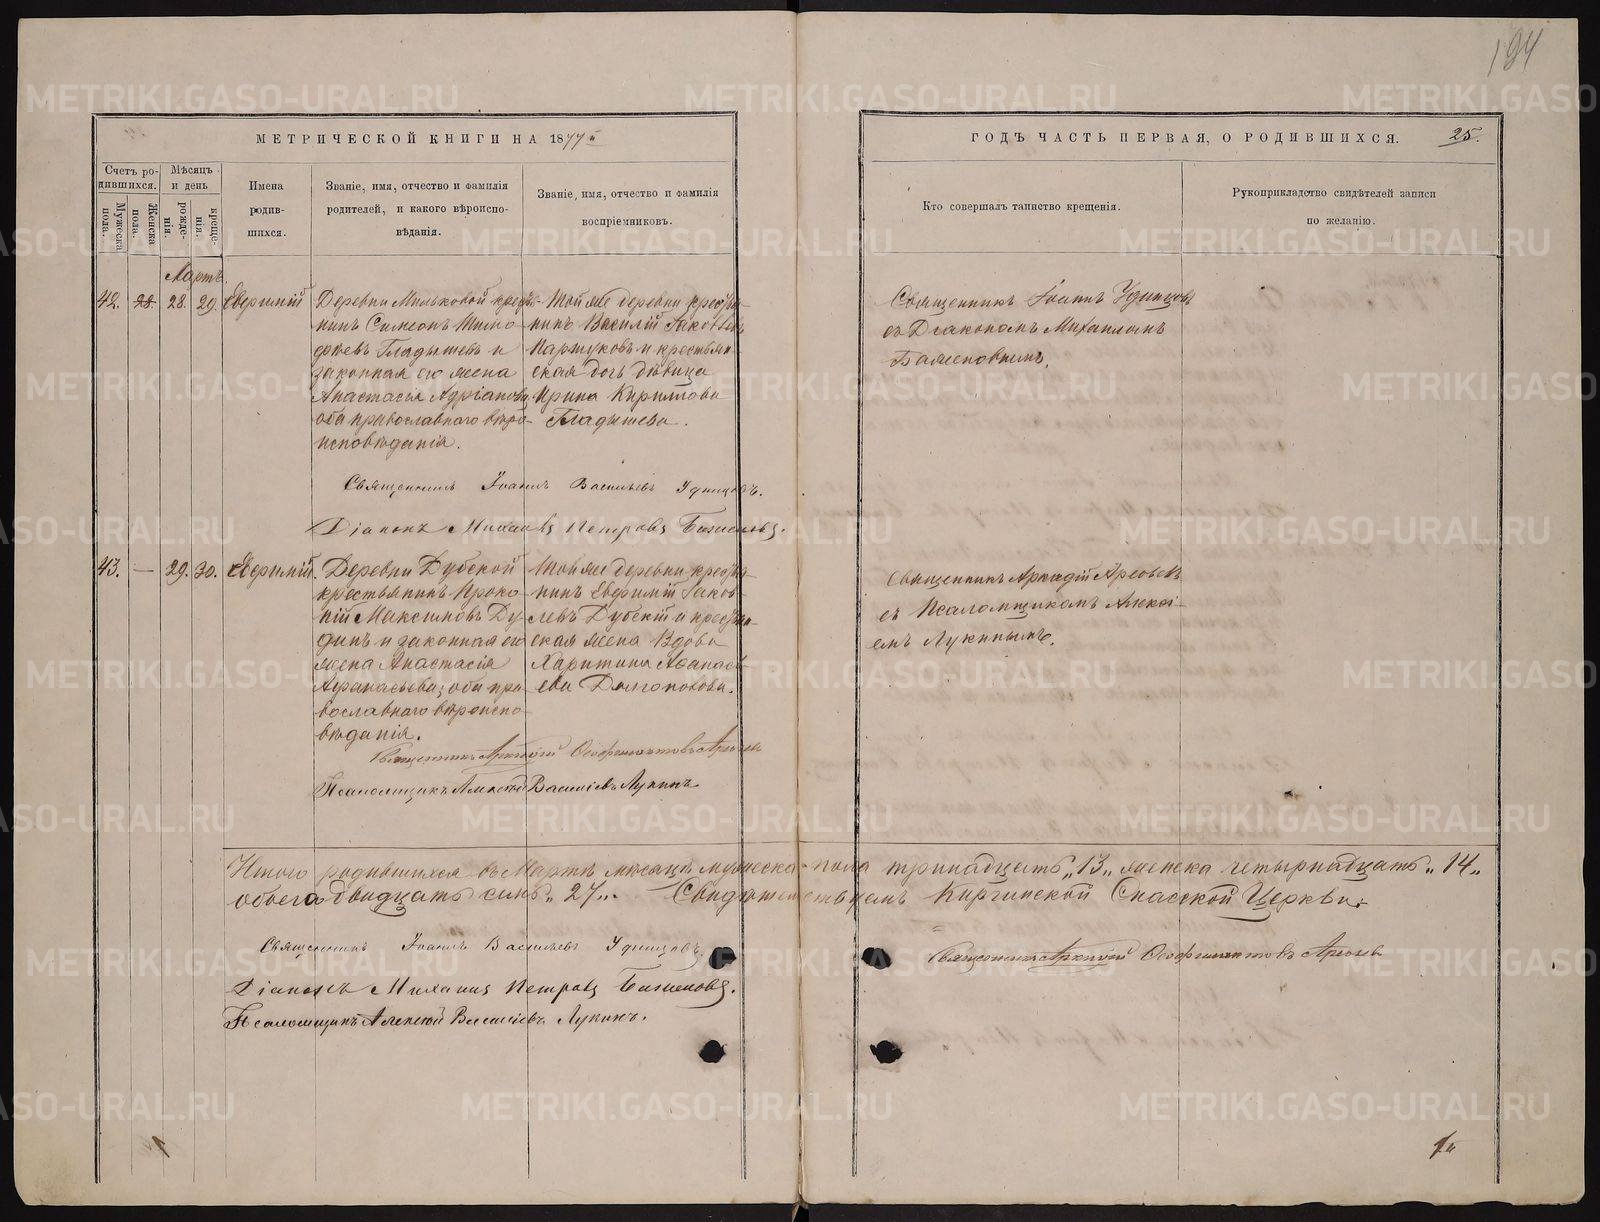 194
МЕТРИЧЕСКОЙ КНИГИ НА 1877
ГОДЪ ЧАСТЬ ПЕРВАЯ, О РОДИВШИХСЯ.
25.
Счетъ ро-
дившихся.
Мужеска пола.
Женска пола.
Мѣсяцъ
и день
рожде-
нія.
креще-
нія.
Имена
родив-
шихся.
Званіе, имя, отчество и фамилія
родителей, и какого вѣроиспо-
вѣданія.
Званіе, имя, отчество и фамилія
воспріемниковъ.
Кто совершалъ таинство крещенія.
Рукоприкладство свидѣтелей записи
по желанію.
Мартъ
42. 28. 28. 29. Евфимій
Деревни Мильковой крестья-
нинъ Симеонъ Тимо-
фѣевъ Гладышевъ и
законная его жена
Анастасія Адріанова,
оба православнаго вѣро-
исповѣданія.
Той же деревни крестья-
нинъ Василій Іаковлевъ
Паршуковъ и крестьян-
ская дочь дѣвица
Ирина Кириллова
Гладышева.
Священникъ Іоаннъ Удинцовъ
съ Діакономъ Михаиломъ
Баженовымъ.
Священникъ Іоаннъ Васильевъ Удинцовъ.
Діаконъ Михаилъ Петровъ Баженовъ.
43. — 29. 30. Евфимій.
Деревни Дубской
крестьянинъ Проко-
пій Максимовъ Ду-
динъ и законная его
жена Анастасія
Афанасьева; оба пра-
вославнаго вѣроиспо-
вѣданія.
Той же деревни крестья-
нинъ Евфимій Іаков-
левъ Дубскій и крестьян-
ская жена Вдова
Харитина Афанась-
ева Долгополова.
Священникъ Аркадій Арефьевъ
съ Псаломщикомъ Алексі-
емъ Лукинымъ.
Священникъ Аркадій Феофилактовъ Арефьевъ
Псаломщикъ Алексій Василіевъ Лукинъ
Итого родившихся въ Мартѣ мѣсяцѣ мужеска пола тринадцать „13„ женска четырнадцать „14„
обоего двадцать семь „27„. Свидѣтельствуемъ Киргинской Спасской Церкви:
Священникъ Іоаннъ Васильевъ Удинцовъ.
Священникъ Аркадій Феофилактовъ Арефьевъ
Діаконъ Михаилъ Петровъ Баженовъ.
Псаломщикъ Алексій Василіевъ Лукинъ.
METRIKI.GASO-URAL.RU